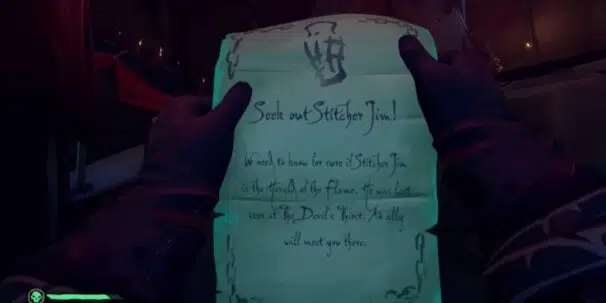 Seek out Stitcher Jim!
We need to know for sure if Stitcher Jim
is the Herald of the Flame. He was last
seen at The Devil's Thirst. An ally
will meet you there.